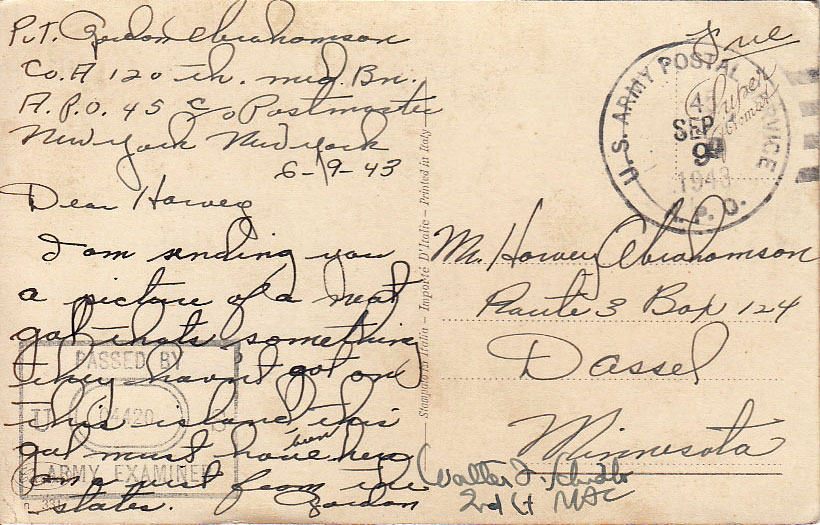 Pvt. Gordon Abrahamson
Co. A 120 th. med. Bn.
A.P.O. 45 c/o Postmaster
New york New york
6-19-43
Dear Harvey
I am sending you
a picture of a neat
gal thats something
they havnt got on
this island this
gal must have been here
on a visit from the
states. Gordon
PASSED BY
U S
04420
ARMY EXAMINER
Stampato in Italia – Importé D'Italie – Printed in Italy
Free
U.S. ARMY POSTAL SERVICE
45
SEP
9
1943
A.P.O.
Mr. Harvey Abrahamson
Route 3 Box 124
Dassel
Minnesota
Walter J.
2nd Lt MAC